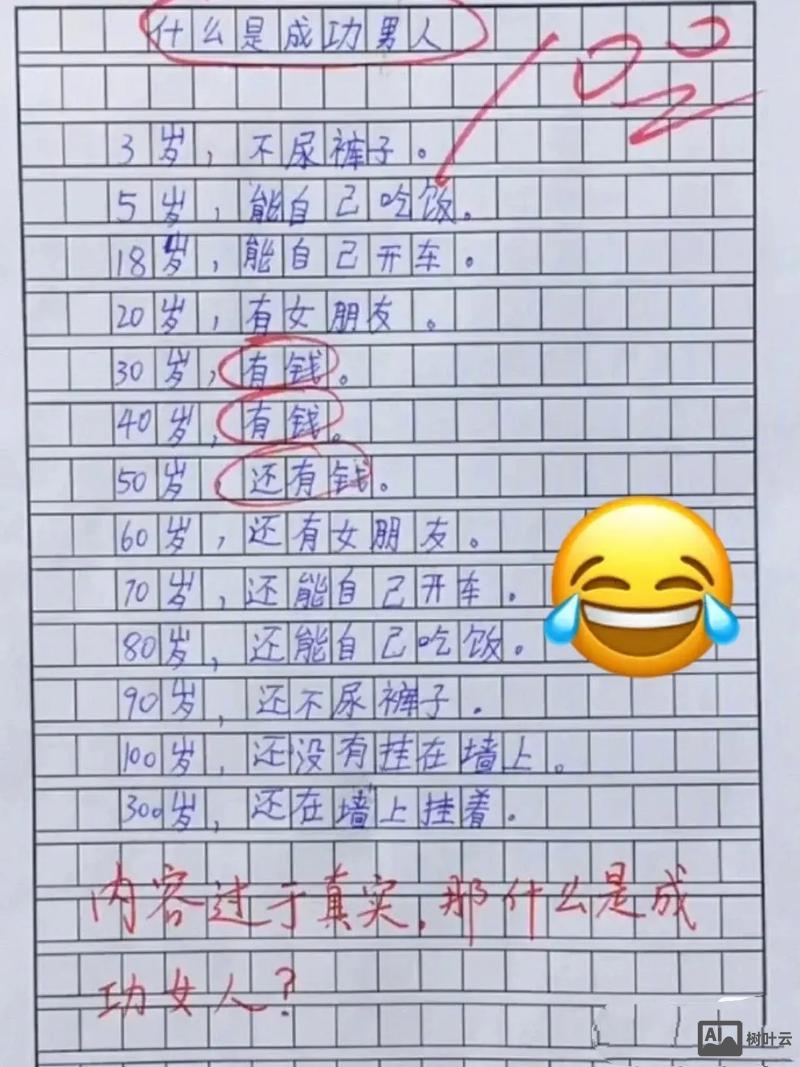 什么是成功男人
100
3岁，不尿裤子。
5岁，能自己吃饭。
18岁，能自己开车。
20岁，有女朋友。
30岁，有钱。
40岁，有钱。
50岁，还有钱。
60岁，还有女朋友。
70岁，还能自己开车。
80岁，还能自己吃饭。
90岁，还不尿裤子。
100岁，还没有挂在墙上。
300岁，还在墙上挂着。
内容过于真实，那什么是成
功女人？
AI 树叶云